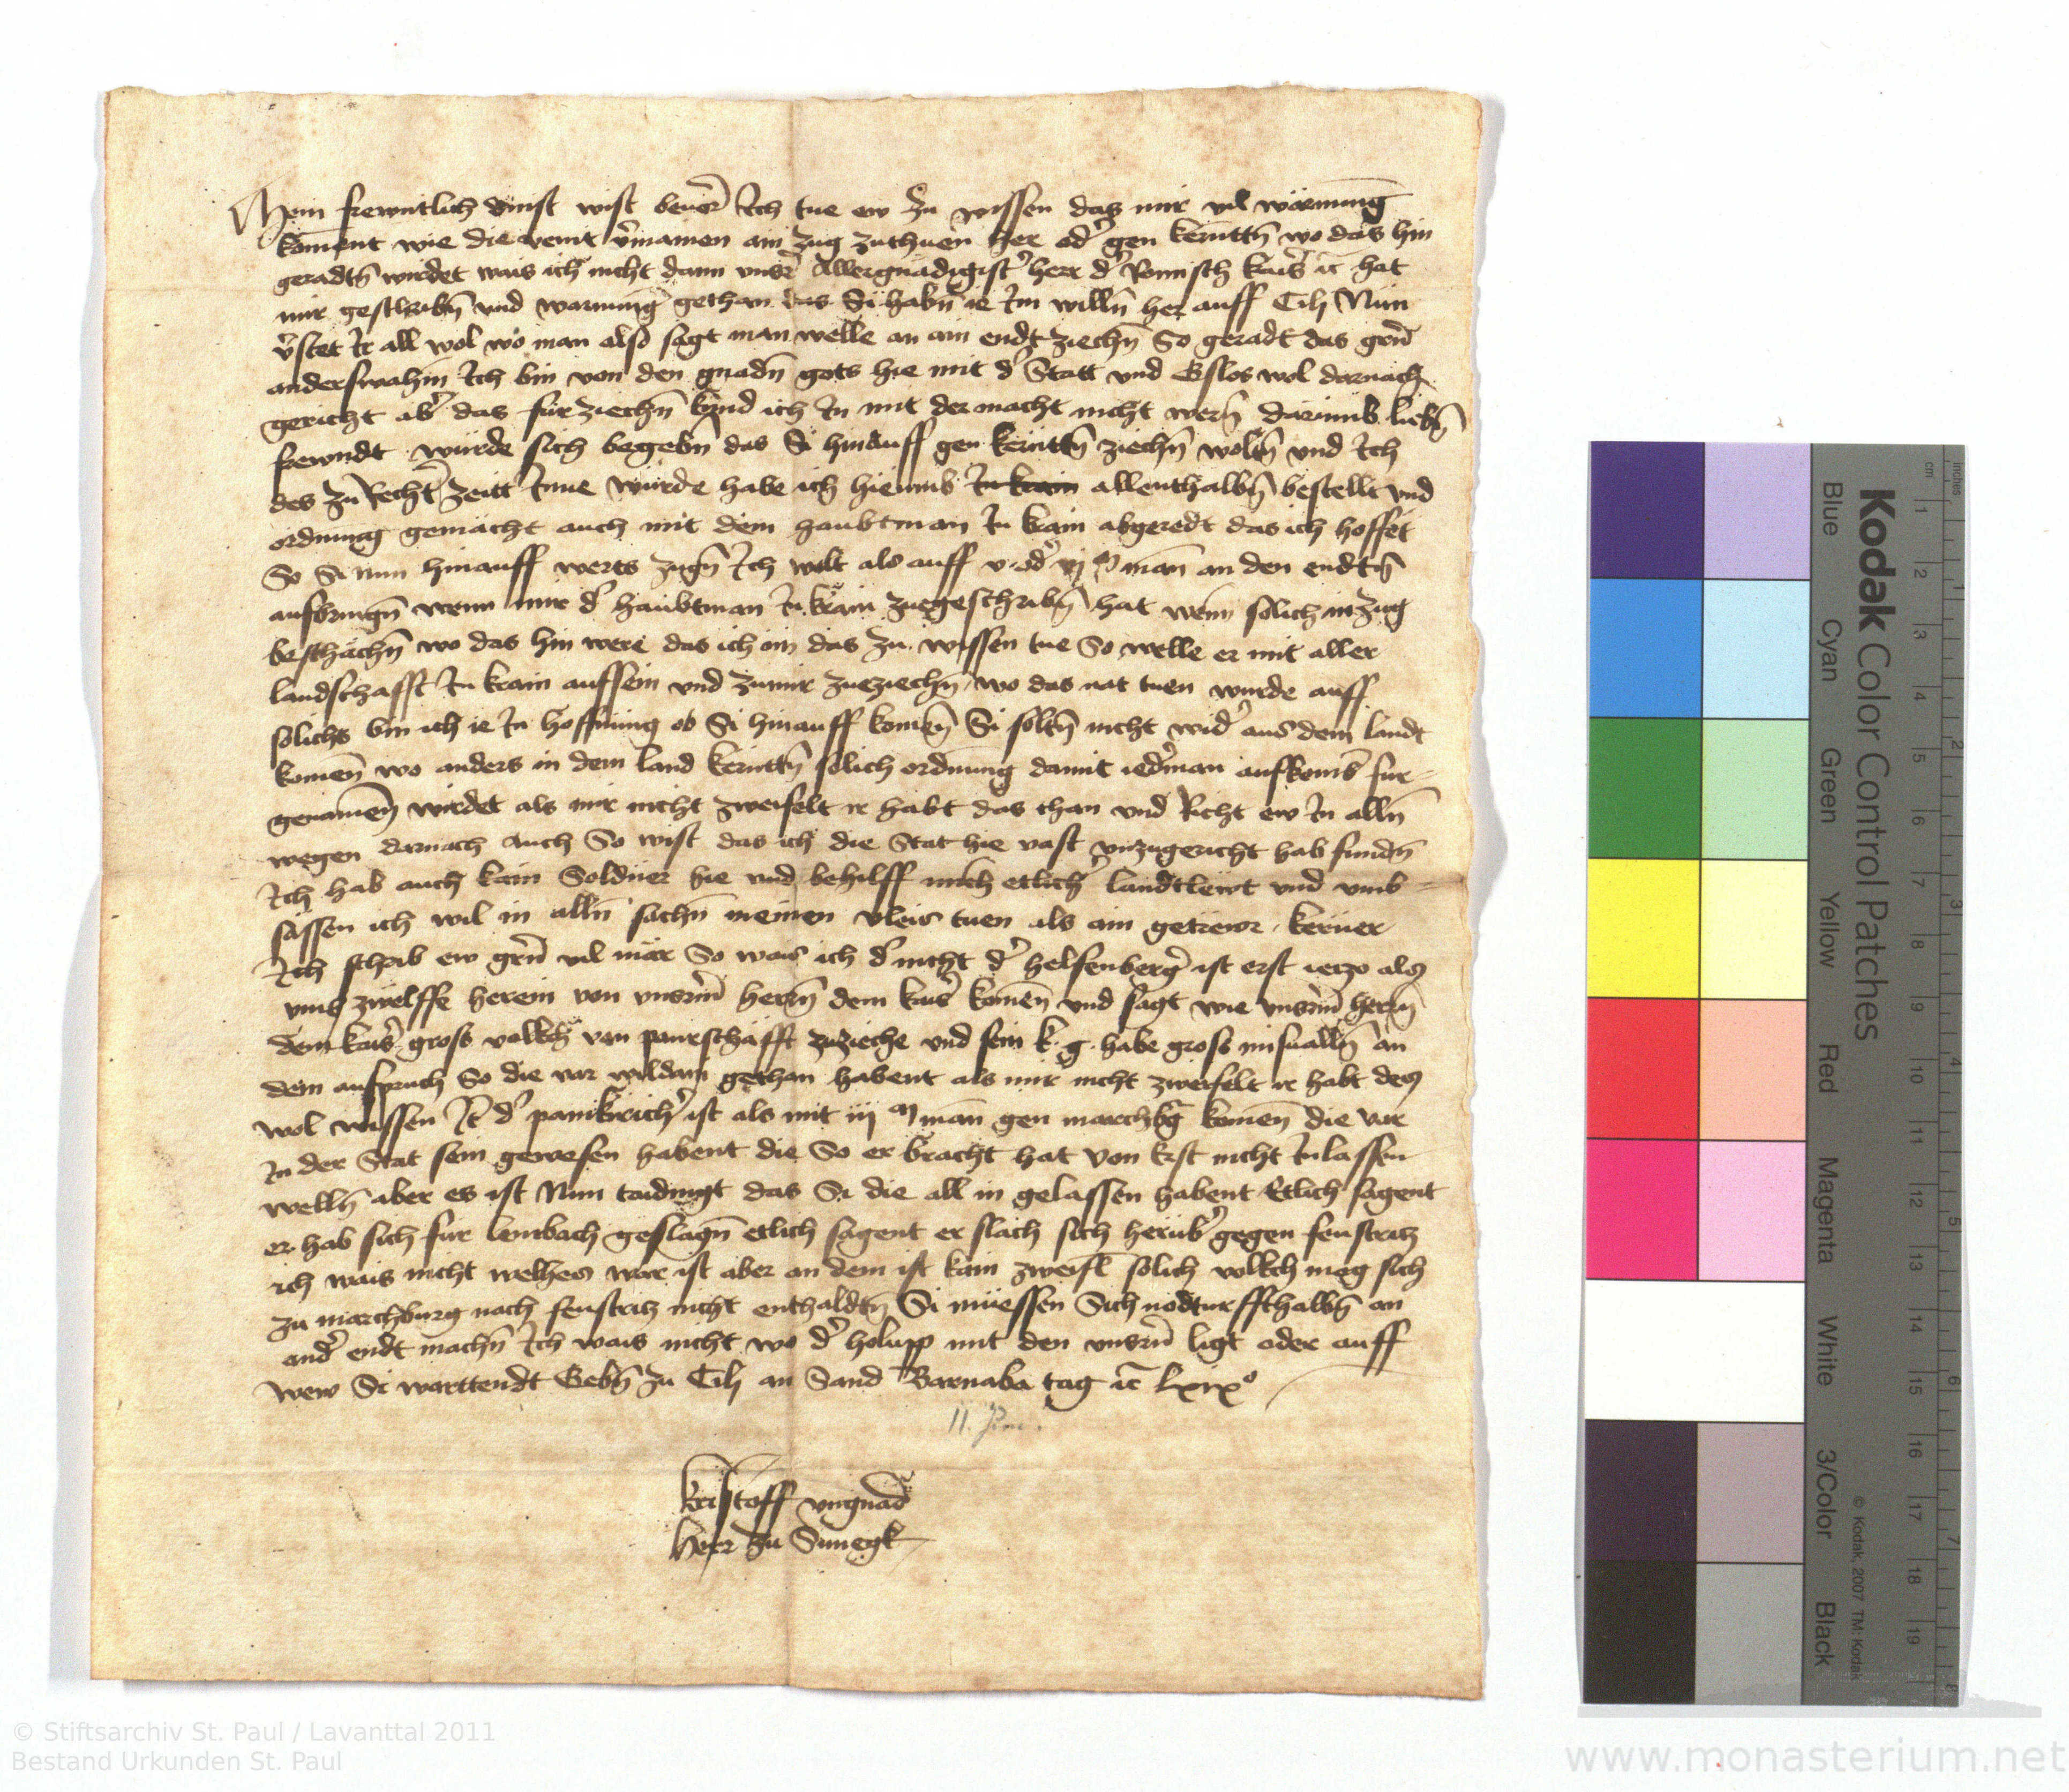 Mein frewntlich dinst wist bevor Ich tue ew zu wissen das mir vil warnung
koment wie die veint v̉mainen ain zug zuthuen her od̉ gen kerntt̄n wo das hin
geradt̄n wirdet wais ich nicht dann vnser̉ Allergnädigist̉ herr d̉ Römisch kais̉ ꝛc hat
mir geschrib̄n vnd warnung gethan das Si hab̄n ie Im will̄n her auff Cili Nün
v̉stet Ir all wol wo man also sagt man welle an ain endt ziech̄n So geradt das gern̄
anderswahin Ich bin von den gnad̄n gots hie mit d̉ Statt vnd Gslos wol darnach
gericht ab̉ das fürziech̄n kund ich In mit der macht nicht wer̄n darumb lieb̄n
frewndt würde sich begeb̄n das Si hinauff gen kerntt̄n ziech̄n wolt̄n vnd Ich
des zu Recht̉ zeitt Inne würde habe ich hieumb In krain allenthalb̄n bestellt vnd
ordnung gemacht auch mit dem haubtman In krain abgeredt das ich hoffet
So Si nun hinauff werts zuḡn Ich wolt als auff v od̉ vj m man an den endt̄n
aufbrinḡn wenn mir d̉ haubtman In krain zuegeschrib̄n hat wenn solich inzug
beschäch̄n wo das hin were das ich im das zu wissen tue So welle er mit aller
landschafft In krain aufsein vnd zumir zueziech̄n wo das nat tuen wurde auff
solichs bin ich ie In hoffnung ob Si hinauff kömen̄ Si solt̄n nicht wid̉ aus dem landt
komen̄ wo anders in dem land kerntt̄n solich ordnung damit ied̉man aufkomb für
genamen̄ wirdet als mir nicht zweifelt ir habt das than vnd Richt ew In all̄n
wegen darnach Auch So wist das ich die Stat hie vast vnzugericht hab fund̄n
Ich hab auch kain Soldner hie vnd behilff mich etlich̉ landtlewt vnd vmb
sassen ich wil in all̄n sach̄n meinen vleis tuen als ain getrewr kerner
Ich schrib ew gern̄ vil mär So wais ich d̉ nicht d̉ helfenberg̉ ist erst ietzo als
vmb zwelffe herein von vnser̄m herr̄n dem kais̉ komen̄ vnd sagt wie vnser̄m herr̄n
dem kais̉ gross volkch von paurschafft zuzieche vnd sein k. g. habe gross misuall̄n an
dem aufpruch So die vor wildan gethan habent als mir nicht zweifelt ir habt des
wol wissen It̄ d̉ pamkirich̉ ist als mit iij m man gen marchbg̉ komen̄ die vor
In der Stat sein gewesen habent die So er bracht hat von erst nicht Inlassen
well̄n aber es ist Nun taidingt das Si die all in gelassen habent Etlich sagent
er hab sich für lembach geslaḡn etlich sagent er slach sich herub̉ gegen feustritz
ich wais nicht welhes war ist aber an dem ist kain zweifl solich volkch mag sich
zu marchburg nach feustritz nicht enthaldt̄n Si müessen Sich nodturffthalb̄n an
and̉ endt mach̄n Ich wais nicht wo d̉ holupp mit den vnser̄n ligt oder auff
wew Si warttendt Geb̄n zu Cili an Sand Barnaba tag ꝛc lxixº
11. Juni.
Kristoff vngnad
herr zu Sunegk
Kodak Color Control Patches
Blue Cyan Green Yellow Red Magenta White 3/Color Black
© Kodak, 2007 TM: Kodak
inches 1 2 3 4 5 6 7 8
cm 1 2 3 4 5 6 7 8 9 10 11 12 13 14 15 16 17 18 19
© Stiftsarchiv St. Paul / Lavanttal 2011
Bestand Urkunden St. Paul
www.monasterium.net